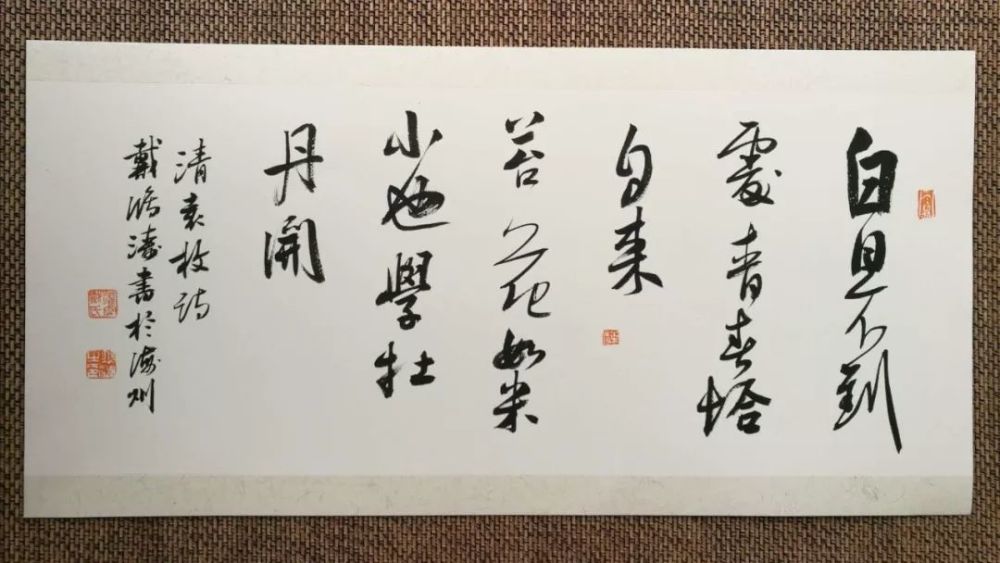 白日不到
處青春恰
自来
苔花如米
小也學牡
丹開
清袁枚詩
戴濤書於深圳